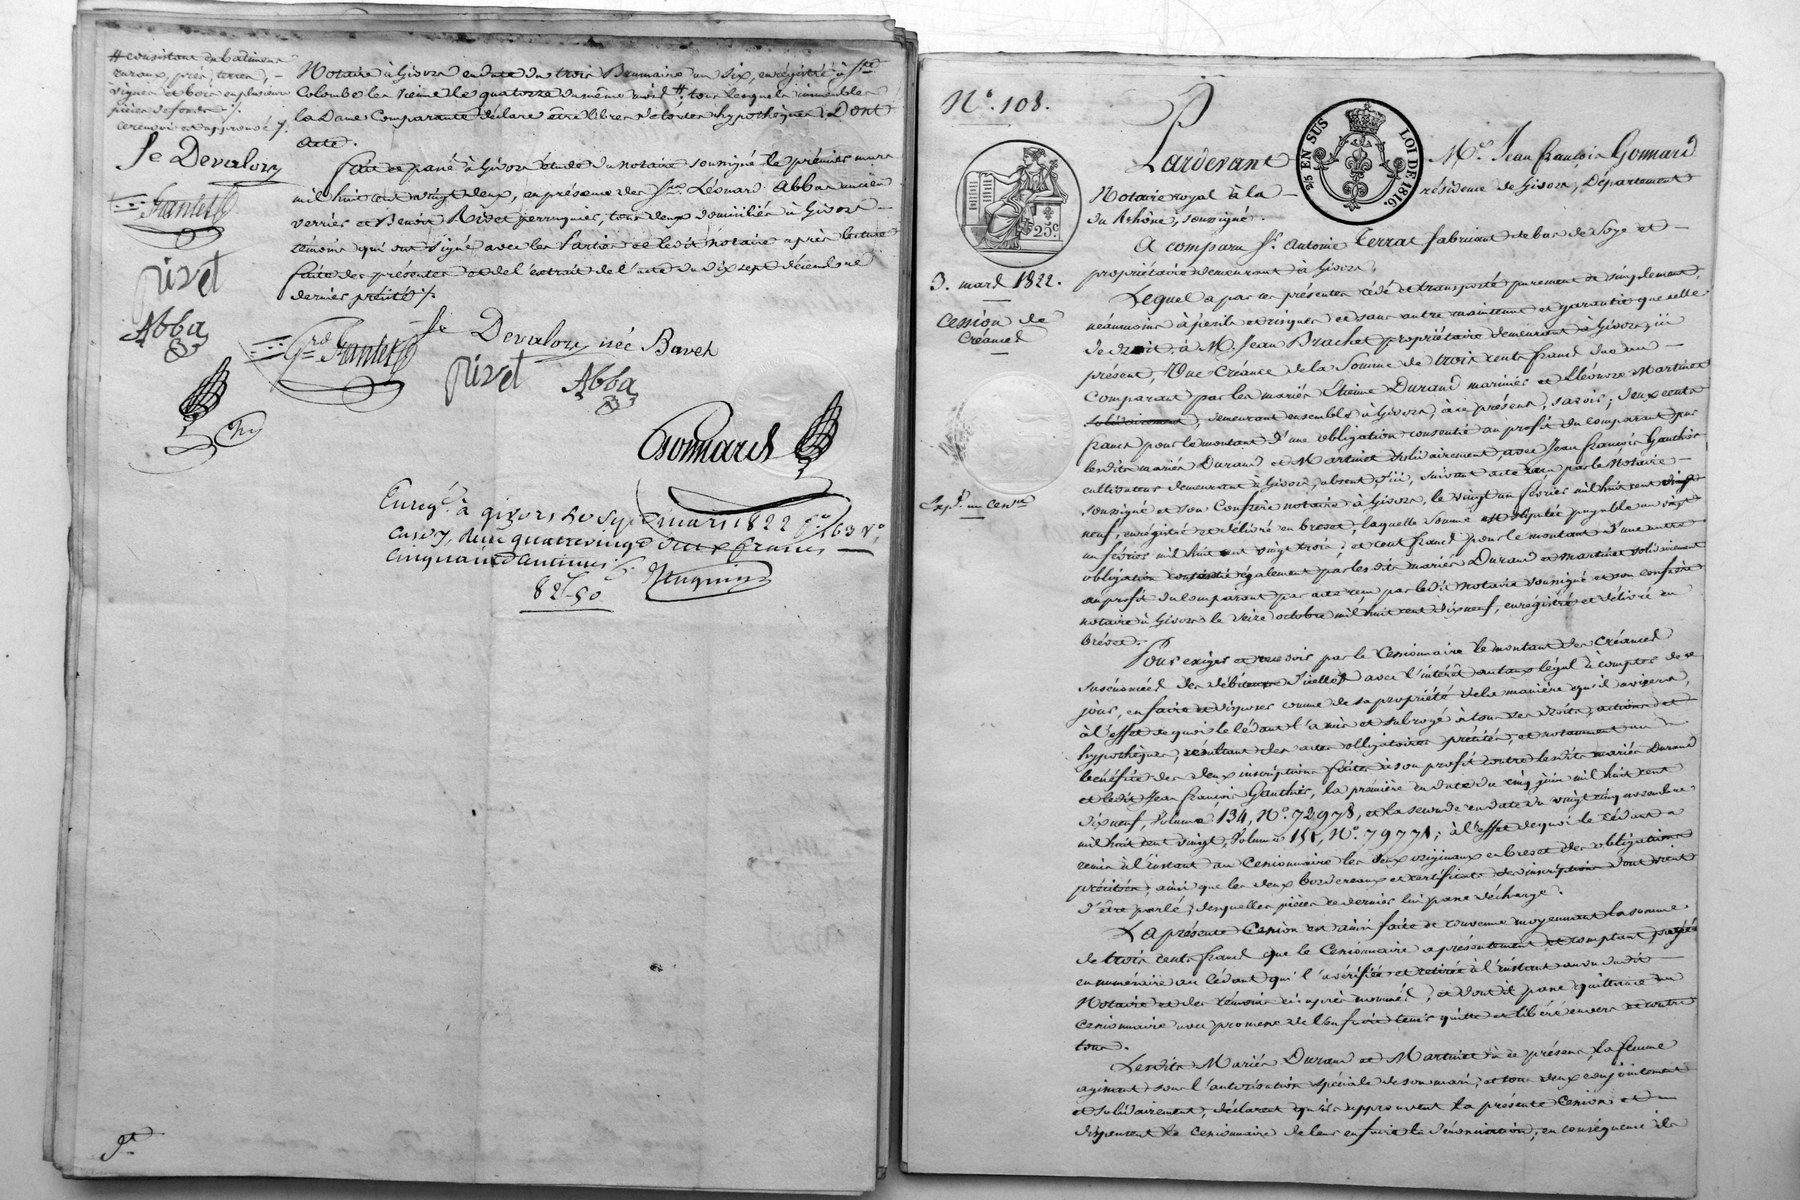 # consistant en batiments
ruraux, près, terres, -
vignes et bois en plusieurs
pièces de fonds ;/.
Je Devalory
Grantet
rivet
Abba
Notaire à Givors en date du trois Brumaire an six, enregistré à Ste
Colombe les Vienne le quatorze du même mois #. tous lesquels immeubles
la Dame Comparante déclare être libres de toutes hypothèques. Dont
acte.
Fait et passé à Givors étude du notaire soussigné le premier mars
mil huit cent vingt deux, en présence des Srs. Léonard Abba ancien
verrier et Benoit Rivet perruquier, tous deux domiciliés à Givors -
témoins qui ont signé avec les Parties et ledit notaire après lecture
faite des présentes et de l'extrait de l'acte du dix sept décembre
dernier précité ;/.
Je Devalory née Bavet
Grantet rivet Abba
Gonnard
Enregé. à givors le sept mars 1822 fo. 163 Vo.
Case 7, reçu quatrevingt deux francs
cinquante centimes
82f-50
No. 108.
25c
25 EN SUS LOI DE 1816.
3. mars 1822.
Cession de
Créances
Pardevant Me. Jean françois Gonnard
Notaire royal à la - résidence de Givors, Département
du Rhône, soussigné.
A comparu Sr. Antoine Terrat fabricant de bas de Soye et -
propriétaire demeurant à Givors;
Lequel a par ces présentes cédé et transporté purement et simplement,
néanmoins à périls et risques et sans autre maintenue et garantie que celle
de droit, à M. Jean Brachet propriétaire demeurant à Givors, ici
présent, Une Créance de la Somme de trois cents francs due au -
comparant par les mariés Etienne Durand marinier et Eléonore Martinet
solidairement, demeurant ensemble à Givors, à ce présents, savoir; deux cents
francs pour le montant d'une obligation consentie au profit du comparant par
lesdits mariés Durand et Martinet solidairement, avec Jean françois Gauthier
cultivateur demeurant à Givors, absent d'ici, suivant acte reçu par le Notaire -
soussigné et son Confrère notaire à Givors, le vingt un février mil huit cent
neuf, enregistré et délivré en brevet, laquelle somme est stipulée payable au vingt
un février mil huit cent vingt trois; et cent francs pour le montant d'une autre
obligation consentie également par lesdits mariés Durand et martinet solidairement
au profit du comparant par acte reçu par ledit notaire soussigné et son confrère
notaire à Givors le seize octobre mil huit cent dixneuf, enregistré et délivré en
brevet.
Pour exiger et recevoir par le Cessionnaire le montant des Créances
susénoncées des débiteurs d'icelles avec l'intérêt au taux légal à compter de ce
jour, en faire et disposer comme de sa propriété de la manière qu'il avisera,
à l'effet de quoi le Cédant l'a mis et subrogé à tous ses droits, actions et
hypothèques, résultant des actes obligatoires précités, et notamment au
bénéfice des deux inscriptions faites à son profit contre lesdits mariés Durand
et ledit Jean françois Gauthier, la première en date du cinq juin mil huit cent
dixneuf, Volume 134, No. 72978, et la seconde en date du vingt cinq novembre
mil huit cent vingt, Volume 151, No. 79771; à l'effet de quoi le Cédant a
remis à l'instant au Cessionnaire les deux originaux en brevet des obligations
précitées, ainsi que les deux bordereaux et certificats des inscriptions dont vient
d'être parlé, desquelles pièces ce dernier lui passe décharge.
La présente Cession est ainsi faite de convenue moyennant la somme
de trois cents francs que le Cessionnaire a présentement et comptant payée
en numéraire au Cédant qui l'a vérifiée et retirée à l'instant au vu dudit -
Notaire et des témoins ci après nommés, et dont il passe quittance au
Cessionnaire avec promesse de l'en faire tenir quitte et libéré envers et contre
tous.
Lesdits Mariés Durand et Martinet à ce présents, la femme
agissant sous l'autorisation spéciale de son mari, et tous deux conjointement
et solidairement, déclarent qu'ils approuvent la présente Cession et -
dispensent le Cessionnaire de leur en faire la dénonciation, en conséquence ils